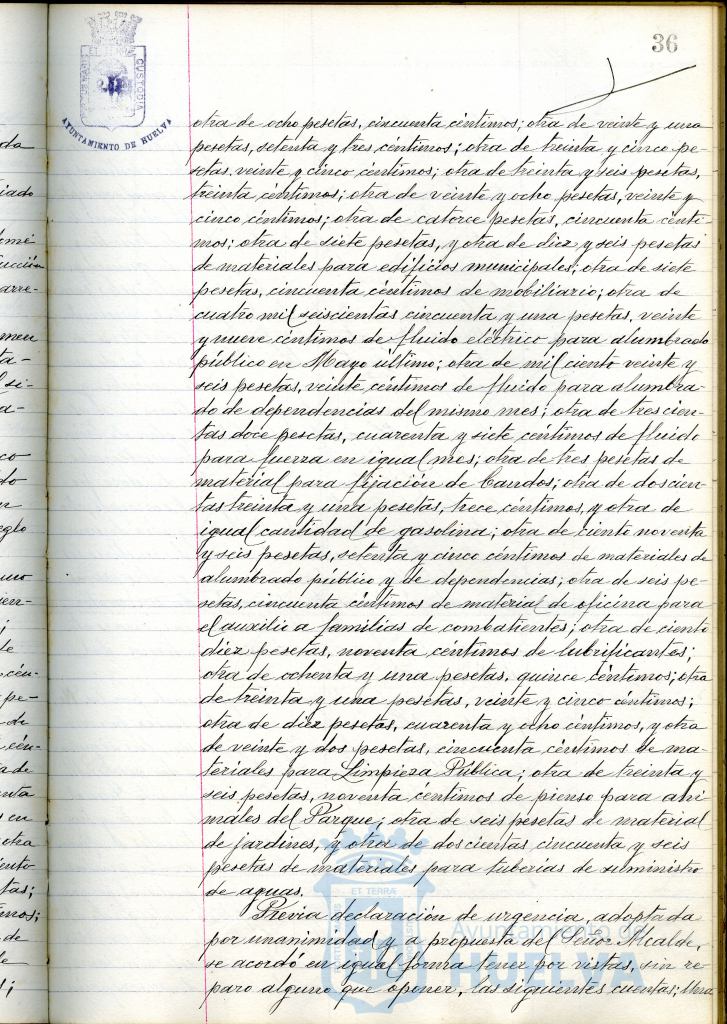 36
AYUNTAMIENTO DE HUELVA
CUSTODIA
otra de ocho pesetas, cincuenta céntimos; otra de veinte y una
pesetas, setenta y tres céntimos; otra de treinta y cinco pe-
setas, veinte y cinco céntimos; otra de treinta y seis pesetas,
treinta céntimos; otra de veinte y ocho pesetas, veinte y
cinco céntimos; otra de catorce pesetas, cincuenta cénti-
mos; otra de siete pesetas, y otra de diez y seis pesetas
de materiales para edificios municipales; otra de siete
pesetas, cincuenta céntimos de mobiliario; otra de
cuatro mil seiscientas cincuenta y una pesetas, veinte
y nueve céntimos de fluido eléctrico para alumbrado
público en Mayo último; otra de mil ciento veinte y
seis pesetas, veinte céntimos de fluido para alumbra-
do de dependencias del mismo mes; otra de trescien-
tas doce pesetas, cuarenta y siete céntimos de fluido
para fuerza en igual mes; otra de tres pesetas de
material para fijación de bandos; otra de doscien-
tas treinta y una pesetas, trece céntimos, y otra de
igual cantidad de gasolina; otra de ciento noventa
y seis pesetas, setenta y cinco céntimos de materiales de
alumbrado público y de dependencias; otra de seis pe-
setas, cincuenta céntimos de material de oficina para
el auxilio a familias de combatientes; otra de ciento
diez pesetas, noventa céntimos de lubrificantes;
otra de ochenta y una pesetas, quince céntimos; otra
de treinta y una pesetas, veinte y cinco céntimos;
otra de diez pesetas, cuarenta y ocho céntimos, y otra
de veinte y dos pesetas, cincuenta céntimos de ma-
teriales para Limpieza Pública; otra de treinta y
seis pesetas, noventa céntimos de pienso para ani-
males del Parque; otra de seis pesetas de material
de jardines, y otra de doscientas cincuenta y seis
pesetas de materiales para tuberías de suministro
de aguas.
Previa declaración de urgencia, adoptada
por unanimidad y a propuesta del Señor Alcalde,
se acordó en igual forma tener por vistas, sin re-
paro alguno que oponer, las siguientes cuentas; Una
ET TERRÆ
Ayuntamiento de
HUELVA